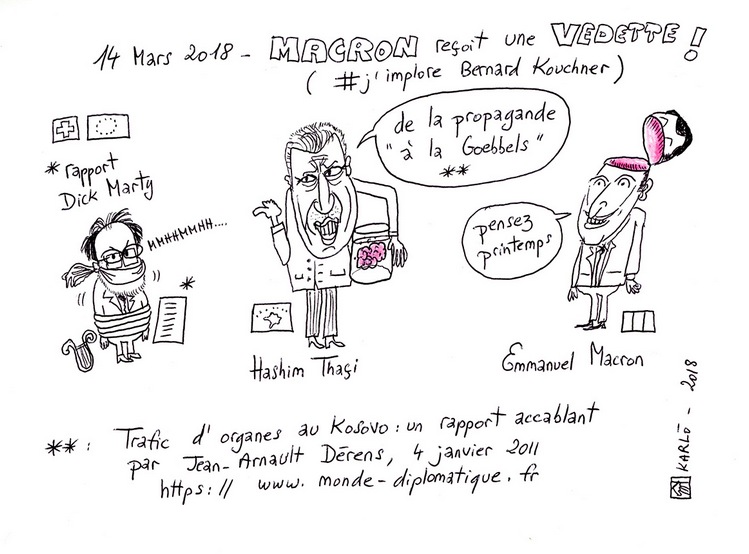 14 Mars 2018 - MACRON reçoit une VEDETTE !
( #j'implore Bernard Kouchner )
* rapport
Dick Marty
MHHHMMHH....
*
de la propagande
"à la Goebbels"
**
pensez
printemps
Hashim Thaçi
Emmanuel Macron
** : Trafic d'organes au Kosovo : un rapport accablant
par Jean-Arnault Dérens, 4 janvier 2011
https:// www.monde-diplomatique.fr
KARLÖ - 2018